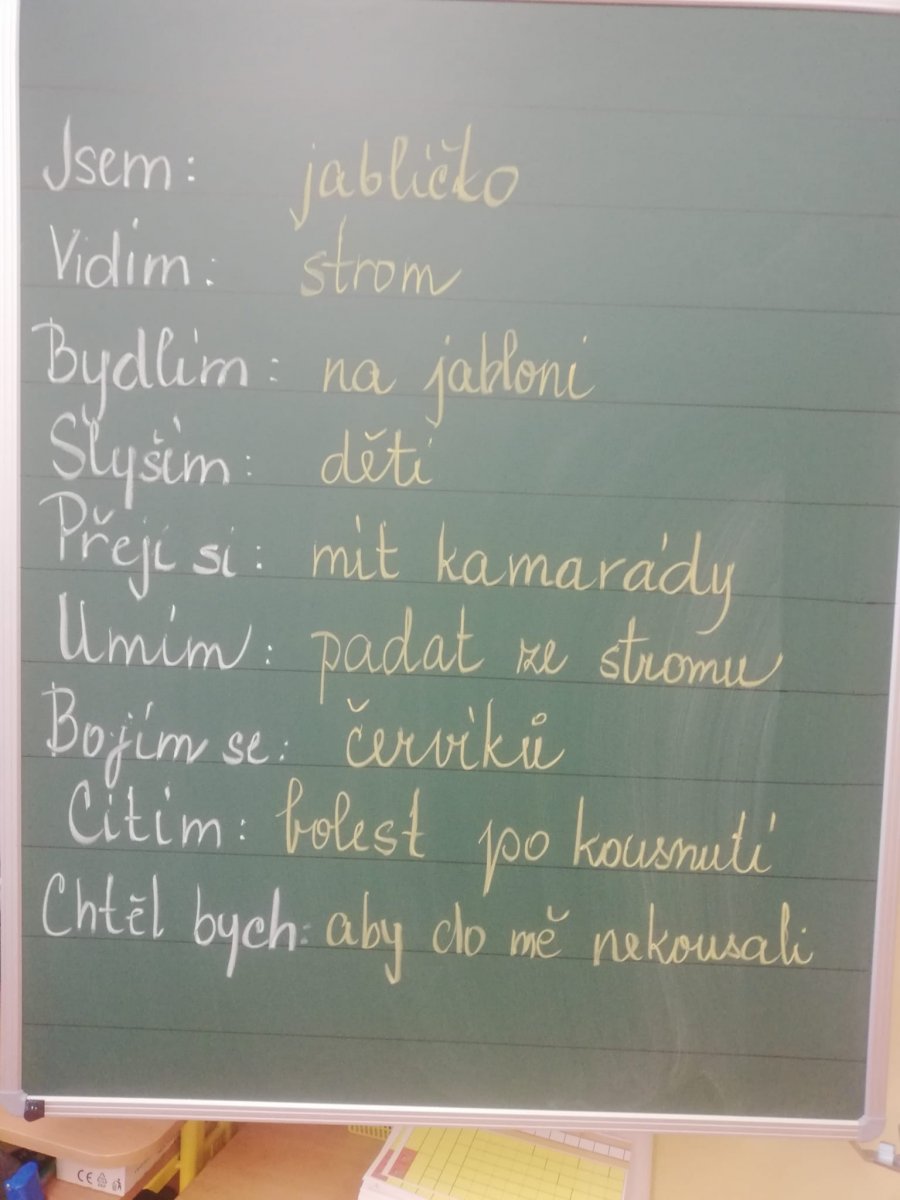 Jsem: jablíčko
Vidím: strom
Bydlím: na jabloni
Slyším: děti
Přeji si: mít kamarády
Umím: padat ze stromu
Bojím se: červíků
Cítím: bolest po kousnutí
Chtěl bych: aby do mě nekousali
CE